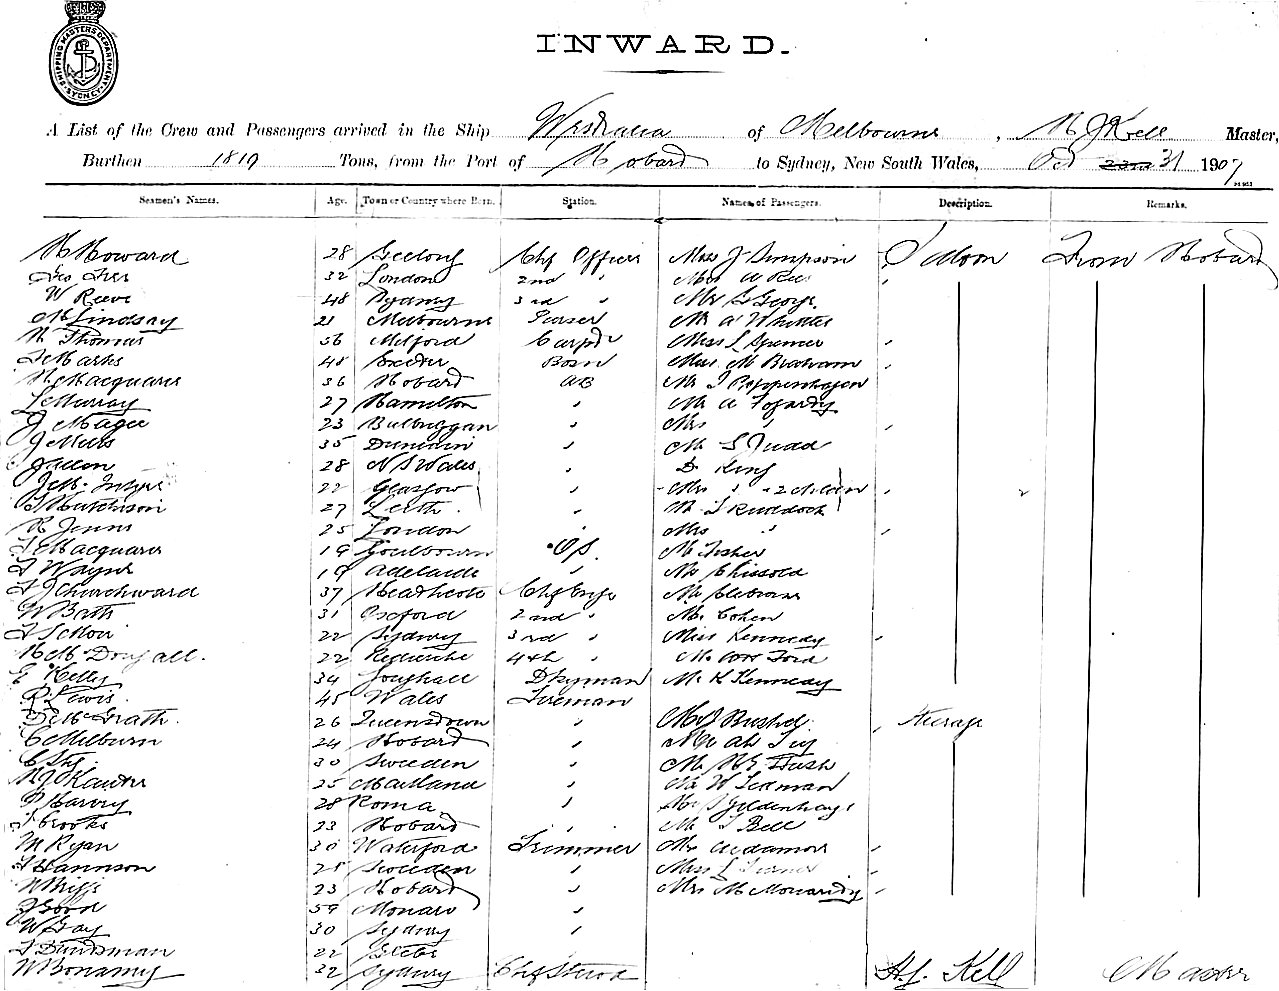 SHIPPING MASTERS DEPARTMENT SYDNEY
INWARD.
A List of the Crew and Passengers arrived in the Ship Westralia of Melbourne, H J Kell Master,
Burthen 1819 Tons, from the Port of Hobard to Sydney, New South Wales, Oct 31 1907
Seamen's Names. Age. Town or Country where Born. Station. Names of Passengers. Description. Remarks.
H Howard 28 Geelong Chf Officer Miss J Simpson Saloon From Hobard
32 London 2nd "
W Reeve 48 Sydney 3rd " Mr G George
M Lindsay 21 Melbourne Purser Mr A Whittle
H Thomas 56 Milford Carptr Miss L Spencer
J Marks 48 Exeter Bosn Miss M Bratram
H Macquarie 36 Hobard AB Mr J Poppenhagen
L Murray 27 Hamilton " Mr A Fogardy
J Magee 23 " Mrs "
J Mills 35 Dunedin " Mr S Judd
28 N S Wales " D King
J McIntyre 22 Glasgow " Mrs " 2 children
J Hutchison 27 Leith " Mr J Ruddock
R Jenns 25 London " Mrs "
J Macquarie 19 Goulbourn O.S. Mr Fisher
J Wayne 19 Adelaide " Mr Chissold
F J Churchward 37 Heathcote Chf Engr
W Bath 31 Oxford 2nd " Mr Cohen
22 Sydney 3rd " Miss Kennedy
H McDougall. 22 Redruthe 4th " Ford
E Kelly 34 Youghall Dkyman Mr K Kennedy
R Lewis 45 Wales Fireman
D McGrath. 26 Queensdown " Mr J Bushel Steerage
C Milburn 24 Hobard " Mr Ah
30 Sweden "
H J Hauter 25 Maitland " Mr W Tedman
P Harvey 28 Roma " Gildenhuys
J Crooks 23 Hobard " Mr J Bell
M Ryan 30 Waterford Trimmer
J Hannson 28 Sweden " Miss L Turner
W Briggs 23 Hobard " Mrs M
J Good 59 Monaro "
W Gay 30 Sydney "
J Dundsman 22 Glebe
W Bonamy 32 Sydney Chf Steward H.J. Kell Master